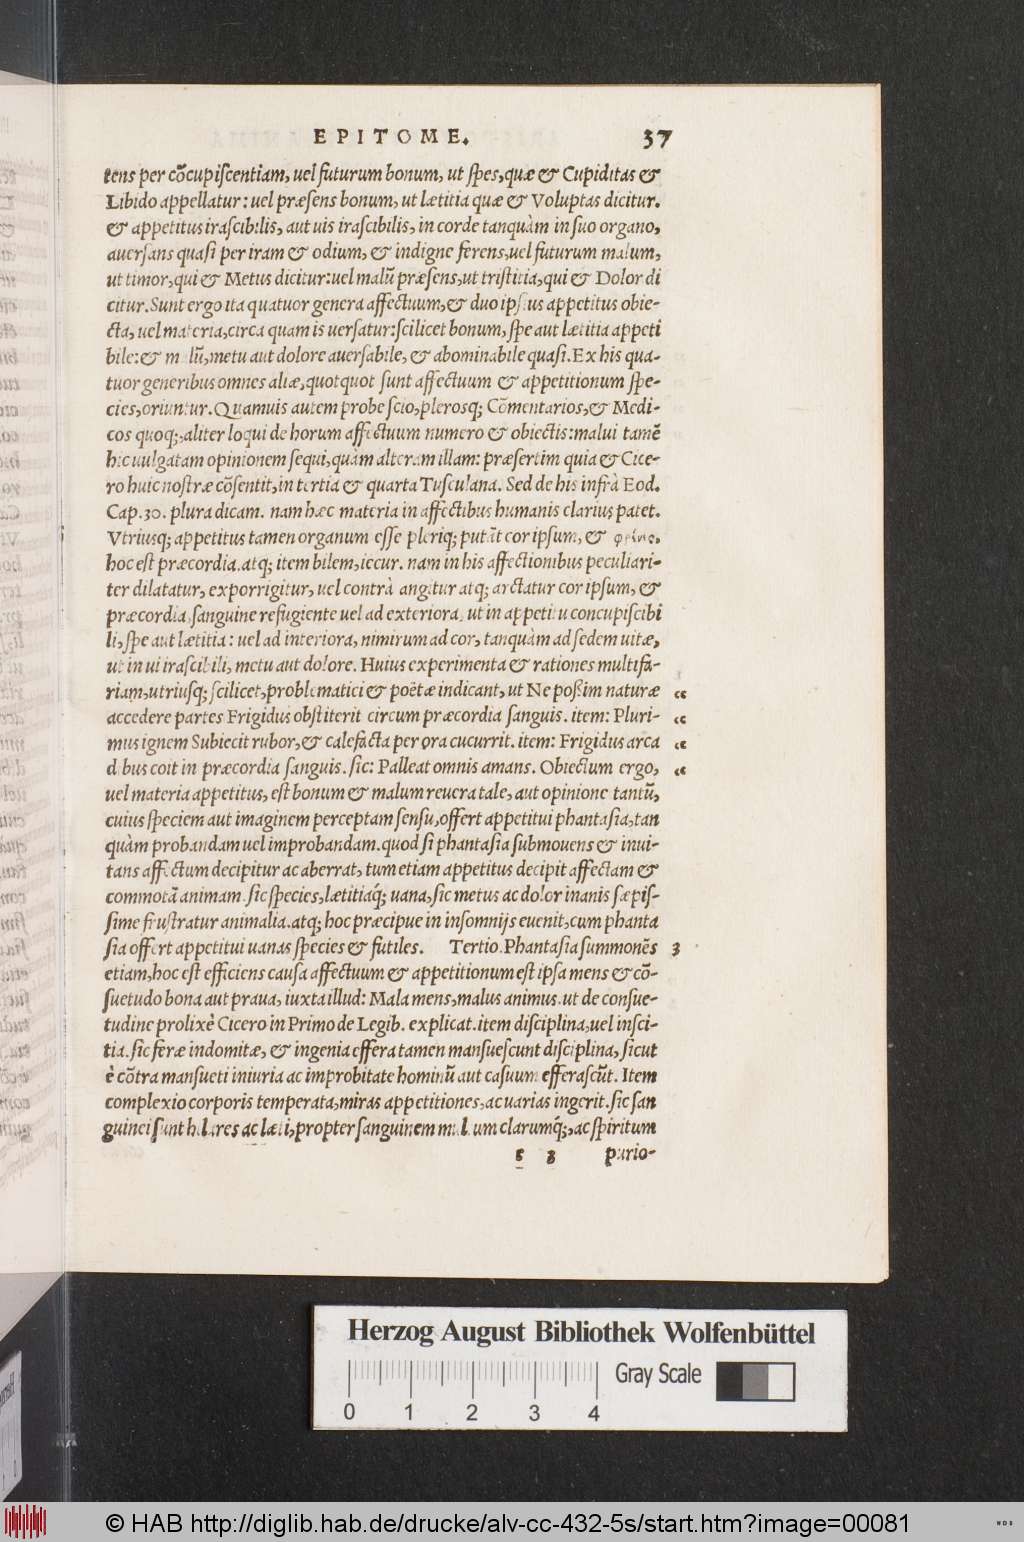 EPITOME. 37
tens per cõcupiscentiam, uel futurum bonum, ut spes, quæ & Cupiditas &
Libido appellatur: uel præsens bonum, ut lætitia quæ & Voluptas dicitur.
& appetitus irascibilis, aut uis irascibilis, in corde tanquàm in suo organo,
auersans quasi per iram & odium, & indigne ferens, uel futurum malum,
ut timor, qui & Metus dicitur: uel malũ præsens, ut tristitia, qui & Dolor di
citur. Sunt ergo ita quatuor genera affectuum, & duo ipsius appetitus obie-
cta, uel materia, circa quam is uersatur: scilicet bonum, spe aut lætitia appeti
bile: & malũ, metu aut dolore auersabile, & abominabile quasi. Ex his qua-
tuor generibus omnes aliæ, quotquot sunt affectuum & appetitionum spe-
cies, oriuntur. Quamuis autem probe scio, plerosq; Cõmentarios, & Medi-
cos quoq;, aliter loqui de horum affectuum numero & obiectis: malui tamẽ
hic uulgatam opinionem sequi, quàm alteram illam: præsertim quia & Cice-
ro huic nostræ cõsentit, in tertia & quarta Tusculana. Sed de his infrà Eod.
Cap. 30. plura dicam. nam hæc materia in affectibus humanis clarius patet.
Vtriusq; appetitus tamen organum esse pleriq; putãt cor ipsum, &
hoc est præcordia. atq; item bilem, iecur. nam in his affectionibus peculiari-
ter dilatatur, exporrigitur, uel contrà angitur atq; arctatur cor ipsum, &
præcordia, sanguine refugiente uel ad exteriora, ut in appetitu concupiscibi
li, spe aut lætitia: uel ad interiora, nimirum ad cor, tanquàm ad sedem uitæ,
ut in ui irascibili, metu aut dolore. Huius experimenta & rationes multifa-
riam, utriusq; scilicet, problematici & poëtæ indicant, ut Ne possim naturæ “
accedere partes Frigidus obstiterit circum præcordia sanguis. item: Pluri- “
mus ignem Subiecit rubor, & calefacta per ora cucurrit. item: Frigidus arca “
dibus coit in præcordia sanguis. sic: Palleat omnis amans. Obiectum ergo, “
uel materia appetitus, est bonum & malum reuera tale, aut opinione tantũ,
cuius speciem aut imaginem perceptam sensu, offert appetitui phantasia, tan
quàm probandam uel improbandam. quod si phantasia submouens & inui-
tans affectum decipitur ac aberrat, tum etiam appetitus decipit affectam &
commotã animam. sic species, lætitiaq́; uana, sic metus ac dolor inanis sæpis-
sime frustratur animalia. atq; hoc præcipue in insomnijs euenit, cum phanta
sia offert appetitui uanas species & futiles. Tertio. Phantasia summonẽs 3
etiam, hoc est efficiens causa affectuum & appetitionum est ipsa mens & cõ-
suetudo bona aut praua, iuxta illud: Mala mens, malus animus. ut de consue-
tudine prolixè Cicero in Primo de Legib. explicat. item disciplina, uel insci-
tia. sic feræ indomitæ, & ingenia effera tamen mansuescunt disciplina, sicut
è cõtra mansueti iniuria ac improbitate hominũ aut casuum efferascũt. Item
complexio corporis temperata, miras appetitiones, ac uarias ingerit. sic san
guinei sunt hilares ac læti, propter sanguinem multum clarumq́;, ac spiritum
g 3 purio-
Herzog August Bibliothek Wolfenbüttel
Gray Scale
0 1 2 3 4
© HAB http://diglib.hab.de/drucke/alv-cc-432-5s/start.htm?image=00081
WDB